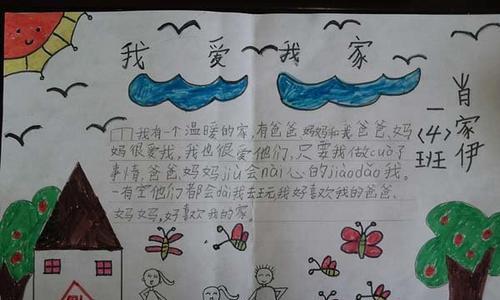 我爱我家
一〈4〉班
肖家伊
我有一个温暖的家,有爸爸妈妈和我爸爸、妈
妈很爱我,我也很爱他们,只要我做cuò了
事情,爸爸、妈妈jiù会nài心的jiāodǎo我。
一有空他们都会dài我去玩,我好喜欢我的爸爸、
妈妈,好喜欢我的家。